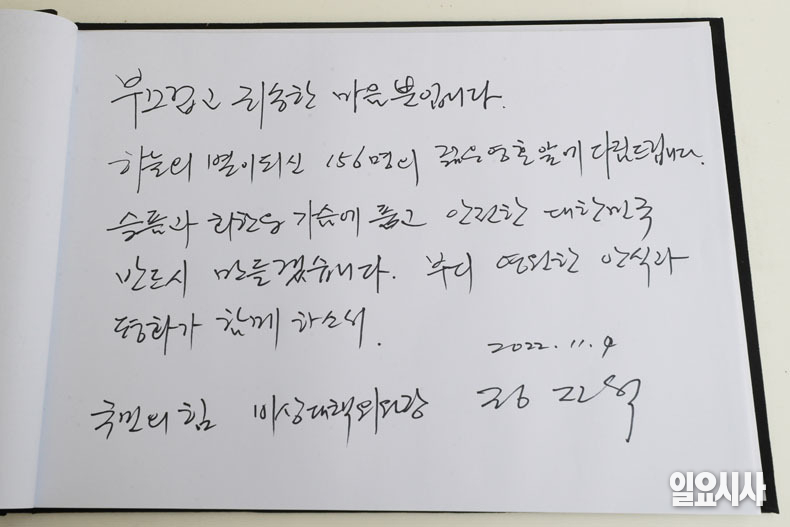 부끄럽고 죄송한 마음뿐입니다.
하늘의 별이되신 156명의 젊은영혼앞에 다짐드립니다.
슬픔과 회한을 가슴에 품고 안전한 대한민국
반드시 만들겠습니다. 부디 영원한 안식과
평화가 함께 하소서.
2022. 11. 9
국민의힘 비상대책위원장 정진석
일요시사